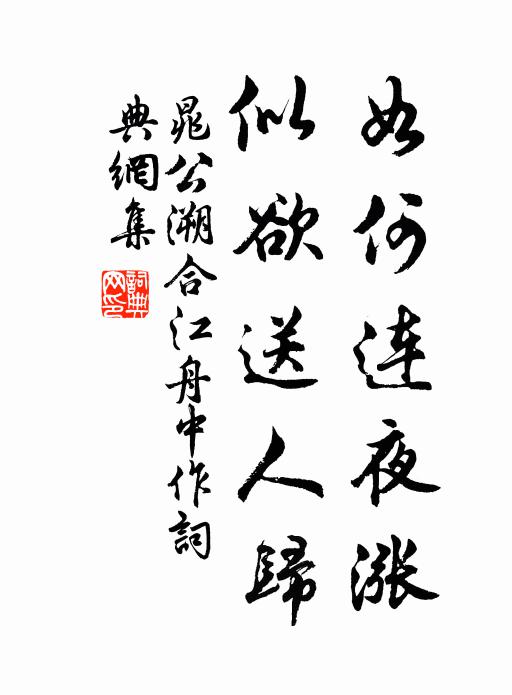 如何連夜漲
似欲送人歸
晁公溯合江舟中作詞
典網集
詞典網印